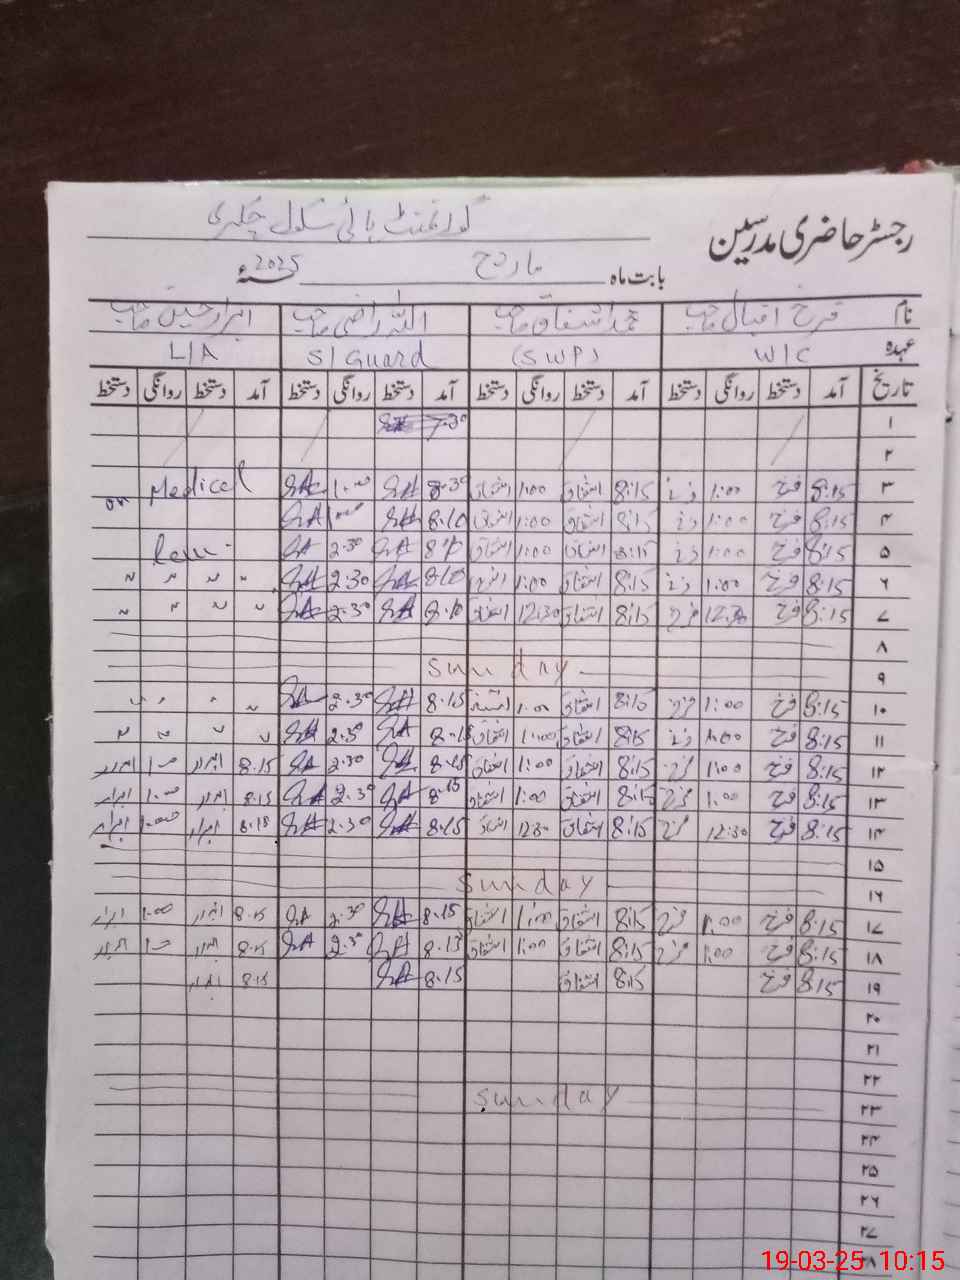 رجسٹر حاضری مدرسین گورنمنٹ ہائی سکول چکری
بابت ماہ مارچ 2025ء
نام فرخ اقبال صاحب محمد اشفاق صاحب اللہ راضی صاحب ابرار حسین صاحب
عہدہ W/C (SWP) S/Guard L/A
تاریخ آمد دستخط روانگی دستخط آمد دستخط روانگی دستخط آمد دستخط روانگی دستخط آمد دستخط روانگی دستخط
۱ 7.30
۲
۳ 8:15 فرخ 1:00 فرخ 8:15 اشفاق 1:00 اشفاق 8.30 1.00 on Medical
۴ 8:15 فرخ 1:00 فرخ 8:15 اشفاق 1:00 اشفاق 8.10 1.00
۵ 8:15 فرخ 1:00 فرخ 8:15 اشفاق 1:00 اشفاق 8.10 2.30
۶ 8:15 فرخ 1:00 فرخ 8:15 اشفاق 1:00 اشفاق 8.10 2.30 " " " "
۷ 8:15 فرخ 12:30 فرخ 8:15 اشفاق 12:30 اشفاق 8.10 2.30 " " " "
۸
۹ Sunday
۱۰ 8:15 فرخ 1:00 فرخ 8:15 اشفاق 1:00 8.15 2.30 " " " "
۱۱ 8:15 فرخ 1:00 فرخ 8:15 اشفاق 1:00 اشفاق 8.15 2.30 " " " "
۱۲ 8:15 فرخ 1:00 فرخ 8:15 اشفاق 1:00 اشفاق 8.15 2.30 8.15 ابرار 1.00 ابرار
۱۳ 8:15 فرخ 1:00 فرخ 8:15 اشفاق 1:00 اشفاق 8.15 2.30 8.15 ابرار 1.00 ابرار
۱۴ 8:15 فرخ 12:30 فرخ 8:15 اشفاق 12:30 اشفاق 8.15 2.30 8.15 ابرار 1.00 ابرار
۱۵
۱۶ Sunday
۱۷ 8:15 فرخ 1:00 فرخ 8:15 اشفاق 1:00 اشفاق 8.15 2.30 8.15 ابرار 1:00 ابرار
۱۸ 8:15 فرخ 1:00 فرخ 8:15 اشفاق 1:00 اشفاق 8.15 2.30 8.15 ابرار 1.00 ابرار
۱۹ 8:15 فرخ 8:15 اشفاق 8.15 8.15 ابرار
۲۰
۲۱
۲۲
۲۳ Sunday
۲۴
۲۵
۲۶
۲۷
۲۸
19-03-25 10:15